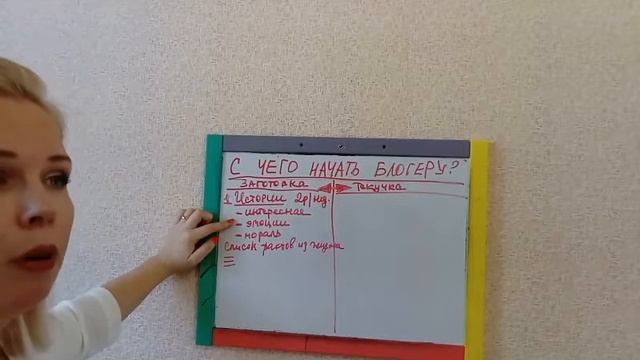 С ЧЕГО НАЧАТЬ БЛОГЕРУ?
ЗАГОТОВКА ТЕКУЧКА
1. Истории 2р/нед.
- интересная
- эмоции
- мораль
Список фактов из жизни